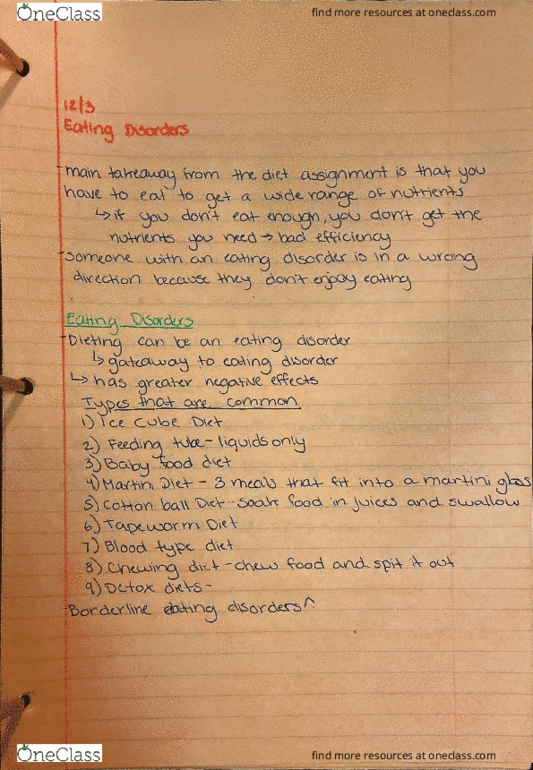 OneClass
find more resources at oneclass.com
12/3
Eating Disorders
-main takeaway from the diet assignment is that you
have to eat to get a wide range of nutrients
↳if you don't eat enough, you don't get the
nutrients you need → bad efficiency
-someone with an eating disorder is in a wrong
direction because they don't enjoy eating
Eating Disorders
-Dieting can be an eating disorder
↳gateaway to eating disorder
↳has greater negative effects
Types that are common
1) Ice Cube Diet
2) Feeding tube - liquids only
3) Baby food diet
4) Martini Diet - 3 meals that fit into a martini glass
5) Cotton ball Diet - soak food in juices and swallow
6) Tapeworm Diet
7) Blood type diet
8) Chewing diet - chew food and spit it out
9) Detox diets -
-Borderline eating disorders^
OneClass
find more resources at oneclass.com